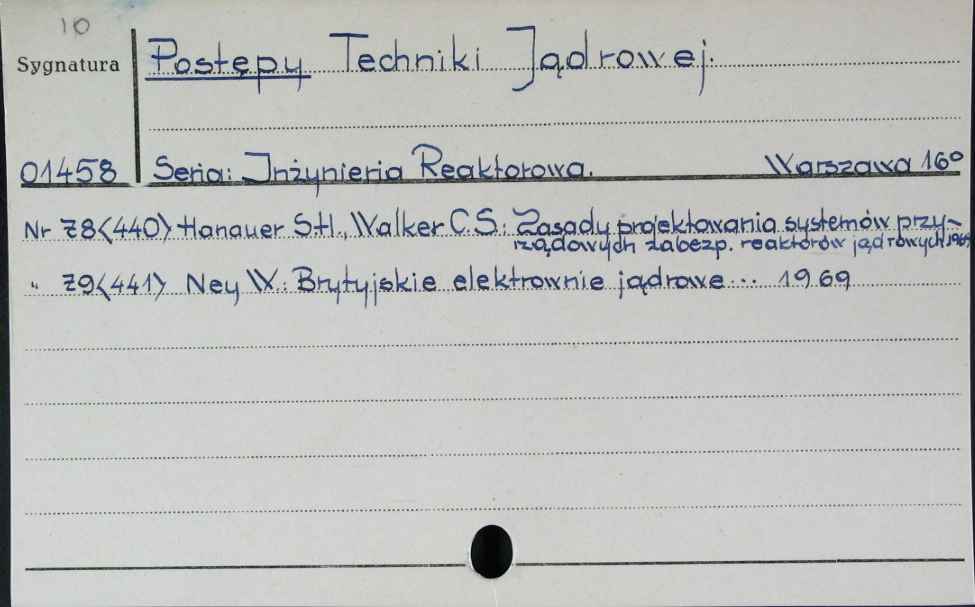 10
Sygnatura Postępy Techniki Jądrowej.
01458 Seria: Inżynieria Reaktorowa. Warszawa 16°
Nr 78<440> Hanauer S.H., Walker C.S.: Zasady projektowania systemów przy-
rządowych zabezp. reaktorów jądrowych 1969
" 79<441> Ney W.: Brytyjskie elektrownie jądrowe... 1969